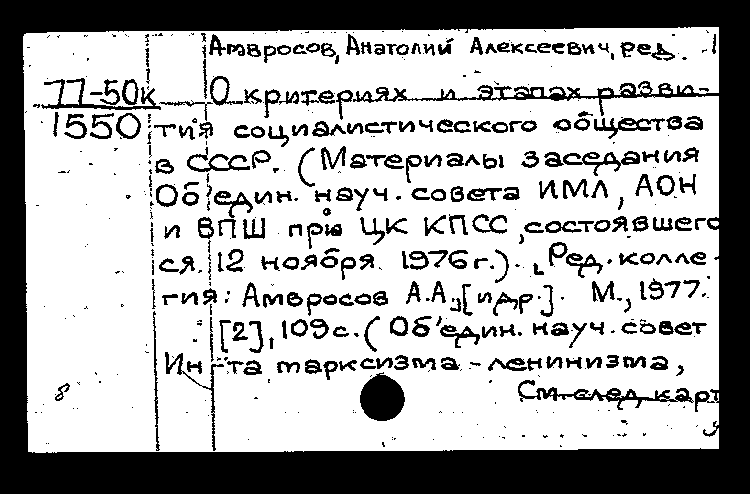 Амвросов, Анатолий Алексеевич, ред.
77-50к О критериях и этапах разви-
1550 тия социалистического общества
в СССР. (Материалы заседания
Объедин. науч. совета ИМЛ, АОН
и ВПШ при ЦК КПСС, состоявшего
ся. 12 ноября 1976 г.). Ред. колле-
гия: Амвросов А.А. [и др.]. М., 1977.
[2], 109 с. (Объедин. науч. совет
Ин-та марксизма-ленинизма,
8 См. след. карт